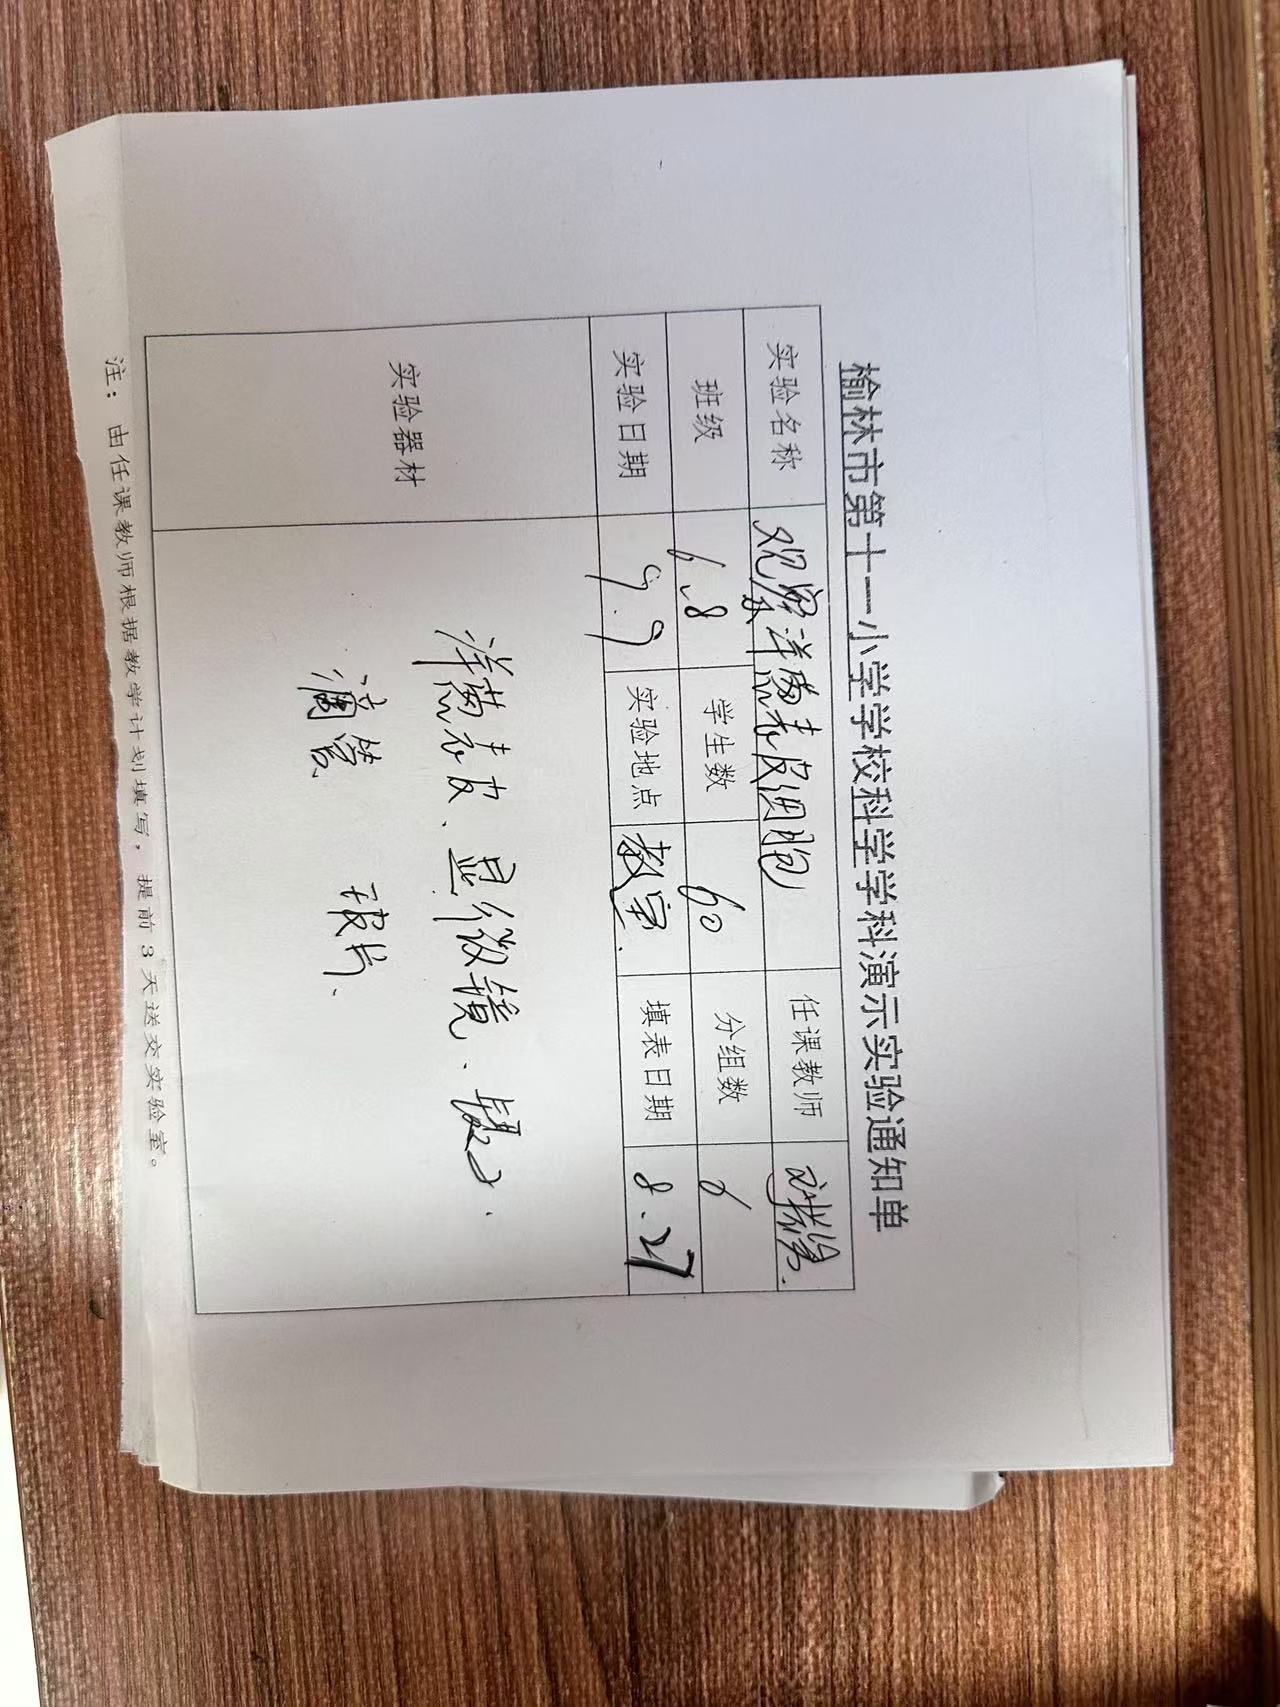 榆林市第十一小学学校科学学科演示实验通知单
实验名称 观察洋葱表皮细胞 任课教师
班级 6.8 学生数 60 分组数 6
实验日期 9.9 实验地点 教室. 填表日期 8.27
实验器材 洋葱表皮、显微镜、镊子.
滴管、 玻片.
注：由任课教师根据教学计划填写，提前3天送交实验室。